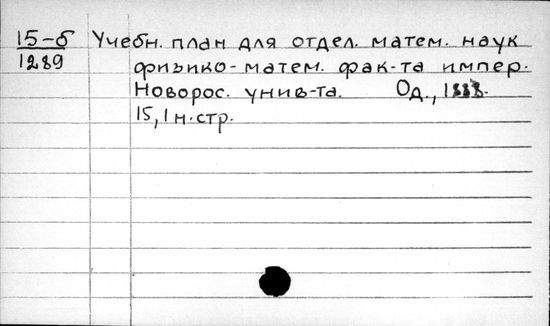 15-б Учебн. план для отдел. матем. наук
1289 физико-матем. фак-та импер.
Новорос. унив-та. Од., 1888.
15, 1 н. стр.